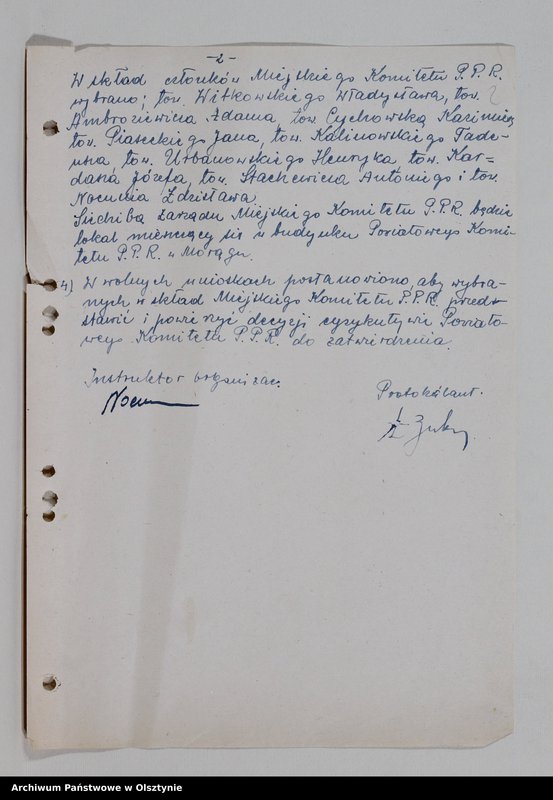 -2-
W skład członków Miejskiego Komitetu P.P.R.
wybrano; tow. Witkowskiego Władysława, tow.
Ambroziewicza Adama, tow. Cychowską Kazimierę
tow. Piaseckiego Jana, tow. Kalinowskiego Tade-
usza, tow. Urbanowskiego Henryka tow. Kar-
dasza Józefa, tow. Stachewicza Antoniego i tow.
Nocunia Zdzisława.
Siedzibą zarządu Miejskiego Komitetu P.P.R. będzie
lokal mieszczący się w budynku Powiatowego Komi-
tetu P.P.R. w Morągu.
4) W wolnych wnioskach postanowiono, aby wybra-
nych w skład Miejskiego Komitetu P.P.R. przed-
stawić i powierzyć decyzji egzekutywie Powiato-
wego Komitetu P.P.R. do zatwierdzenia.
Instruktor organizac.
Protokólant.
Archiwum Państwowe w Olsztynie